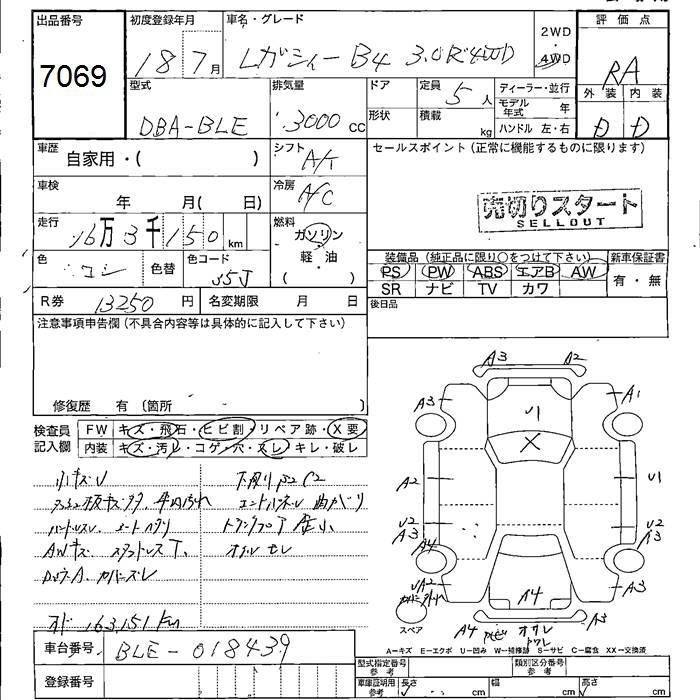 出品番号 初度登録年月 車名・グレード 2WD 評価点
7069 18 7月 レガシィー B4 3.0R 4WD ・ 4WD RA
型式 排気量 ドア 定員 5人 ディーラー・並行 外装 内装
DBA-BLE 3000cc 形状 積載 kg モデル年式 年 D D
ハンドル 左・右
車歴 自家用・( ) シフト A/T セールスポイント(正常に機能するものに限ります)
車検 年 月( 日) 冷房 A/C
売切りスタート
SELLOUT
走行 16万3千150km 燃料 ガソリン
軽・油
( )
色 コン 色替 色コード 35J
装備品(純正品に限り○をつけて下さい) 新車保証書
PS PW ABS エアB AW 有・無
SR ナビ TV カワ
R券 13250円 名変期限 月 日 後日品
注意事項申告欄(不具合内容等は具体的に記入して下さい)
修復歴 有(箇所
検査員 FW キズ・飛石・ヒビ割・リペア跡・X要
記入欄 内装 キズ・汚レ・コゲ・穴・スレ・キレ・破レ
小キズU
下廻りサビC2
コアパネル 曲がり
ハンドルスレ
AWキズ スタッドレスT.
カバーズレ
オド 163,151km
車台番号 BLE-018439
登録番号
A3 A2
A3 A1
U
X
A2 U
U2 U2
A3 A3
A4
UA2 A3
A4
スペア A4 A3
A-キズ E-エクボ U-凹み W-補修跡 S-サビ C-腐食 XX-交換済
型式指定番号 参考 類別区分番号 参考
車庫証明用 参考 長さ cm 幅 cm 高さ cm